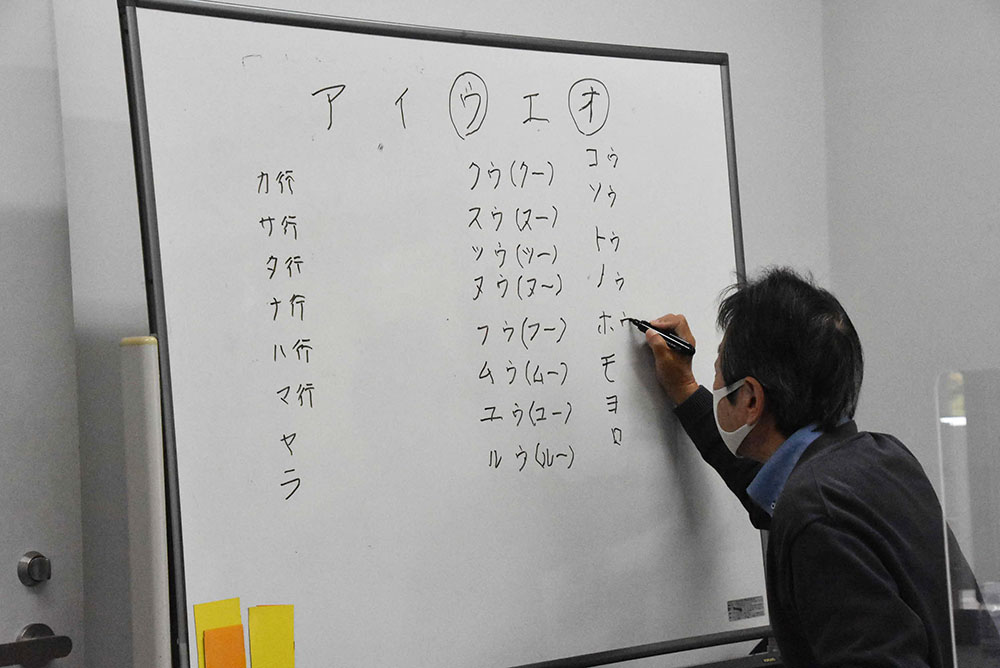 ア イ ウ エ オ
カ行 クウ(クー) コウ
サ行 スウ(スー) ソウ
タ行 ツウ(ツー) トウ
ナ行 ヌウ(ヌー) ノウ
ハ行 フウ(フー) ホウ
マ行 ムウ(ムー) モ
ヤ ユウ(ユー) ヨ
ラ ルウ(ルー) ロ